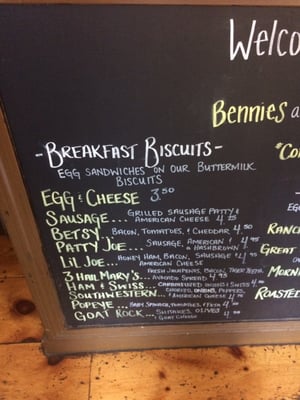 Welco
Bennies a
- BREAKFAST BISCUITS -
EGG SANDWICHES ON OUR BUTTERMILK
BISCUITS
EGG & CHEESE 3.50
SAUSAGE... GRILLED SAUSAGE PATTY &
AMERICAN CHEESE 4.25
BETSY BACON, TOMATOES, & CHEDDAR 4.50
PATTY JOE... SAUSAGE, AMERICAN &
& HASHBROWN 4.95
LIL JOE... HONEY HAM, BACON, SAUSAGE &
AMERICAN CHEESE 4.95
3 HAIL MARY'S... FRESH JALAPENOS, BACON,
AVOCADO SPREAD
HAM & SWISS... CARAMELIZED ONIONS & SWISS
SOUTHWESTERN... CHORIZO, ONIONS, PEPPERS,
& AMERICAN CHEESE
POPEYE... BABY SPINACH, TOMATOES, & FETA
GOAT ROCK... SHITAKES, ONIONS
& GOAT CHEESE
RANCH
GREAT
MORN
ROASTED